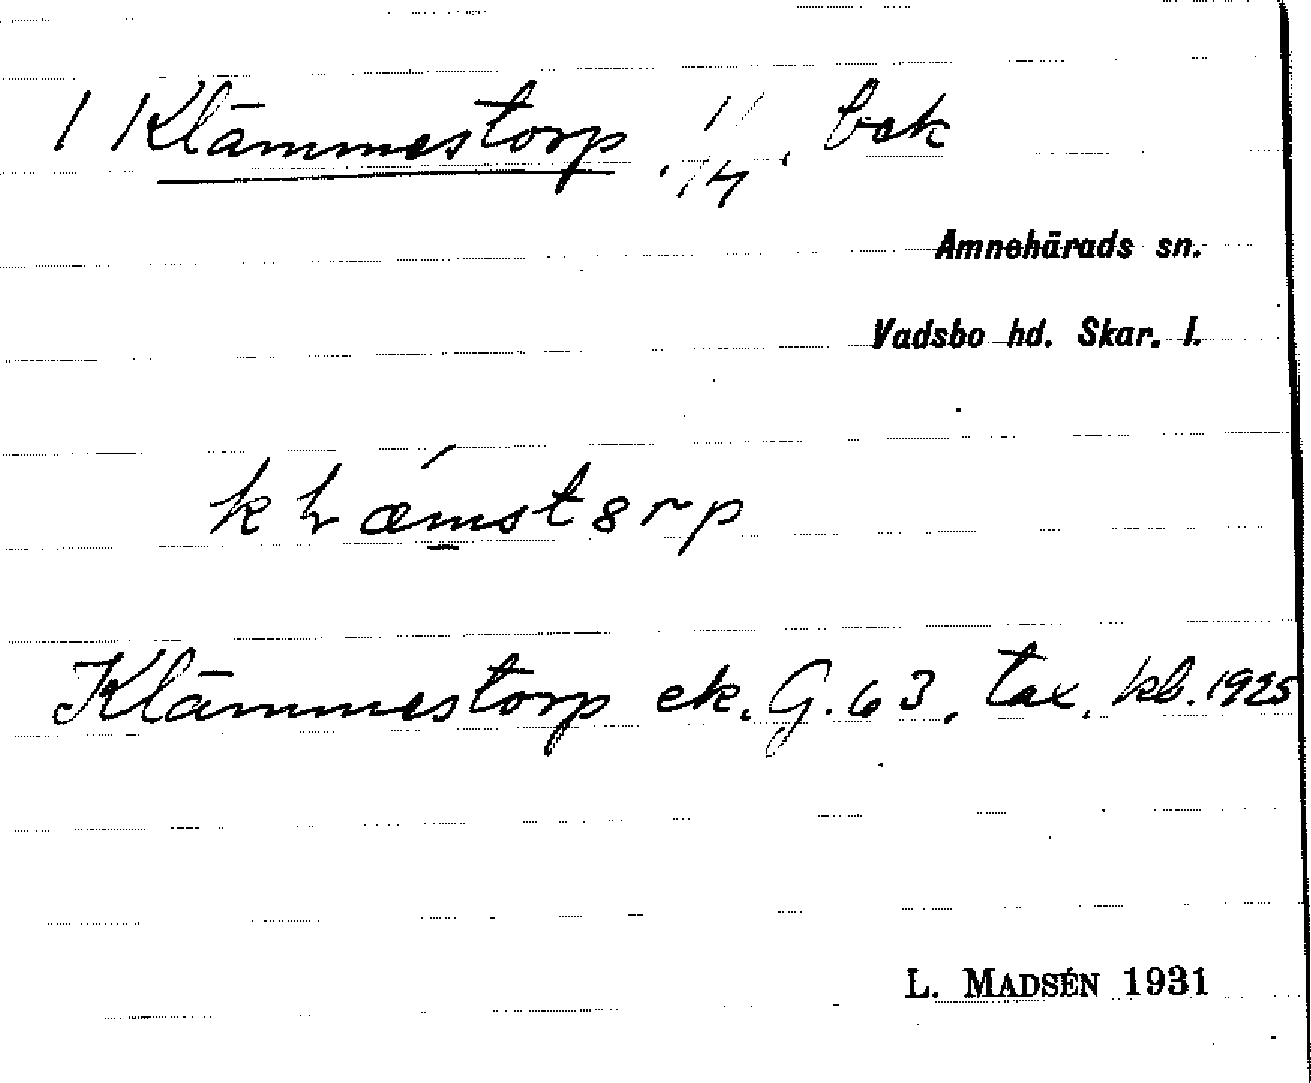 1 Klämmestorp 1/74 bek
Amnehärads sn.
Vadsbo hd. Skar. l.
Klämmestorp ek. G. 63, tax. kb. 1925
L. MADSÉN 1931